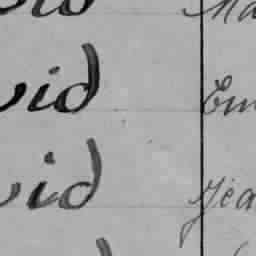 vid Ma
vid Em
vid Jea